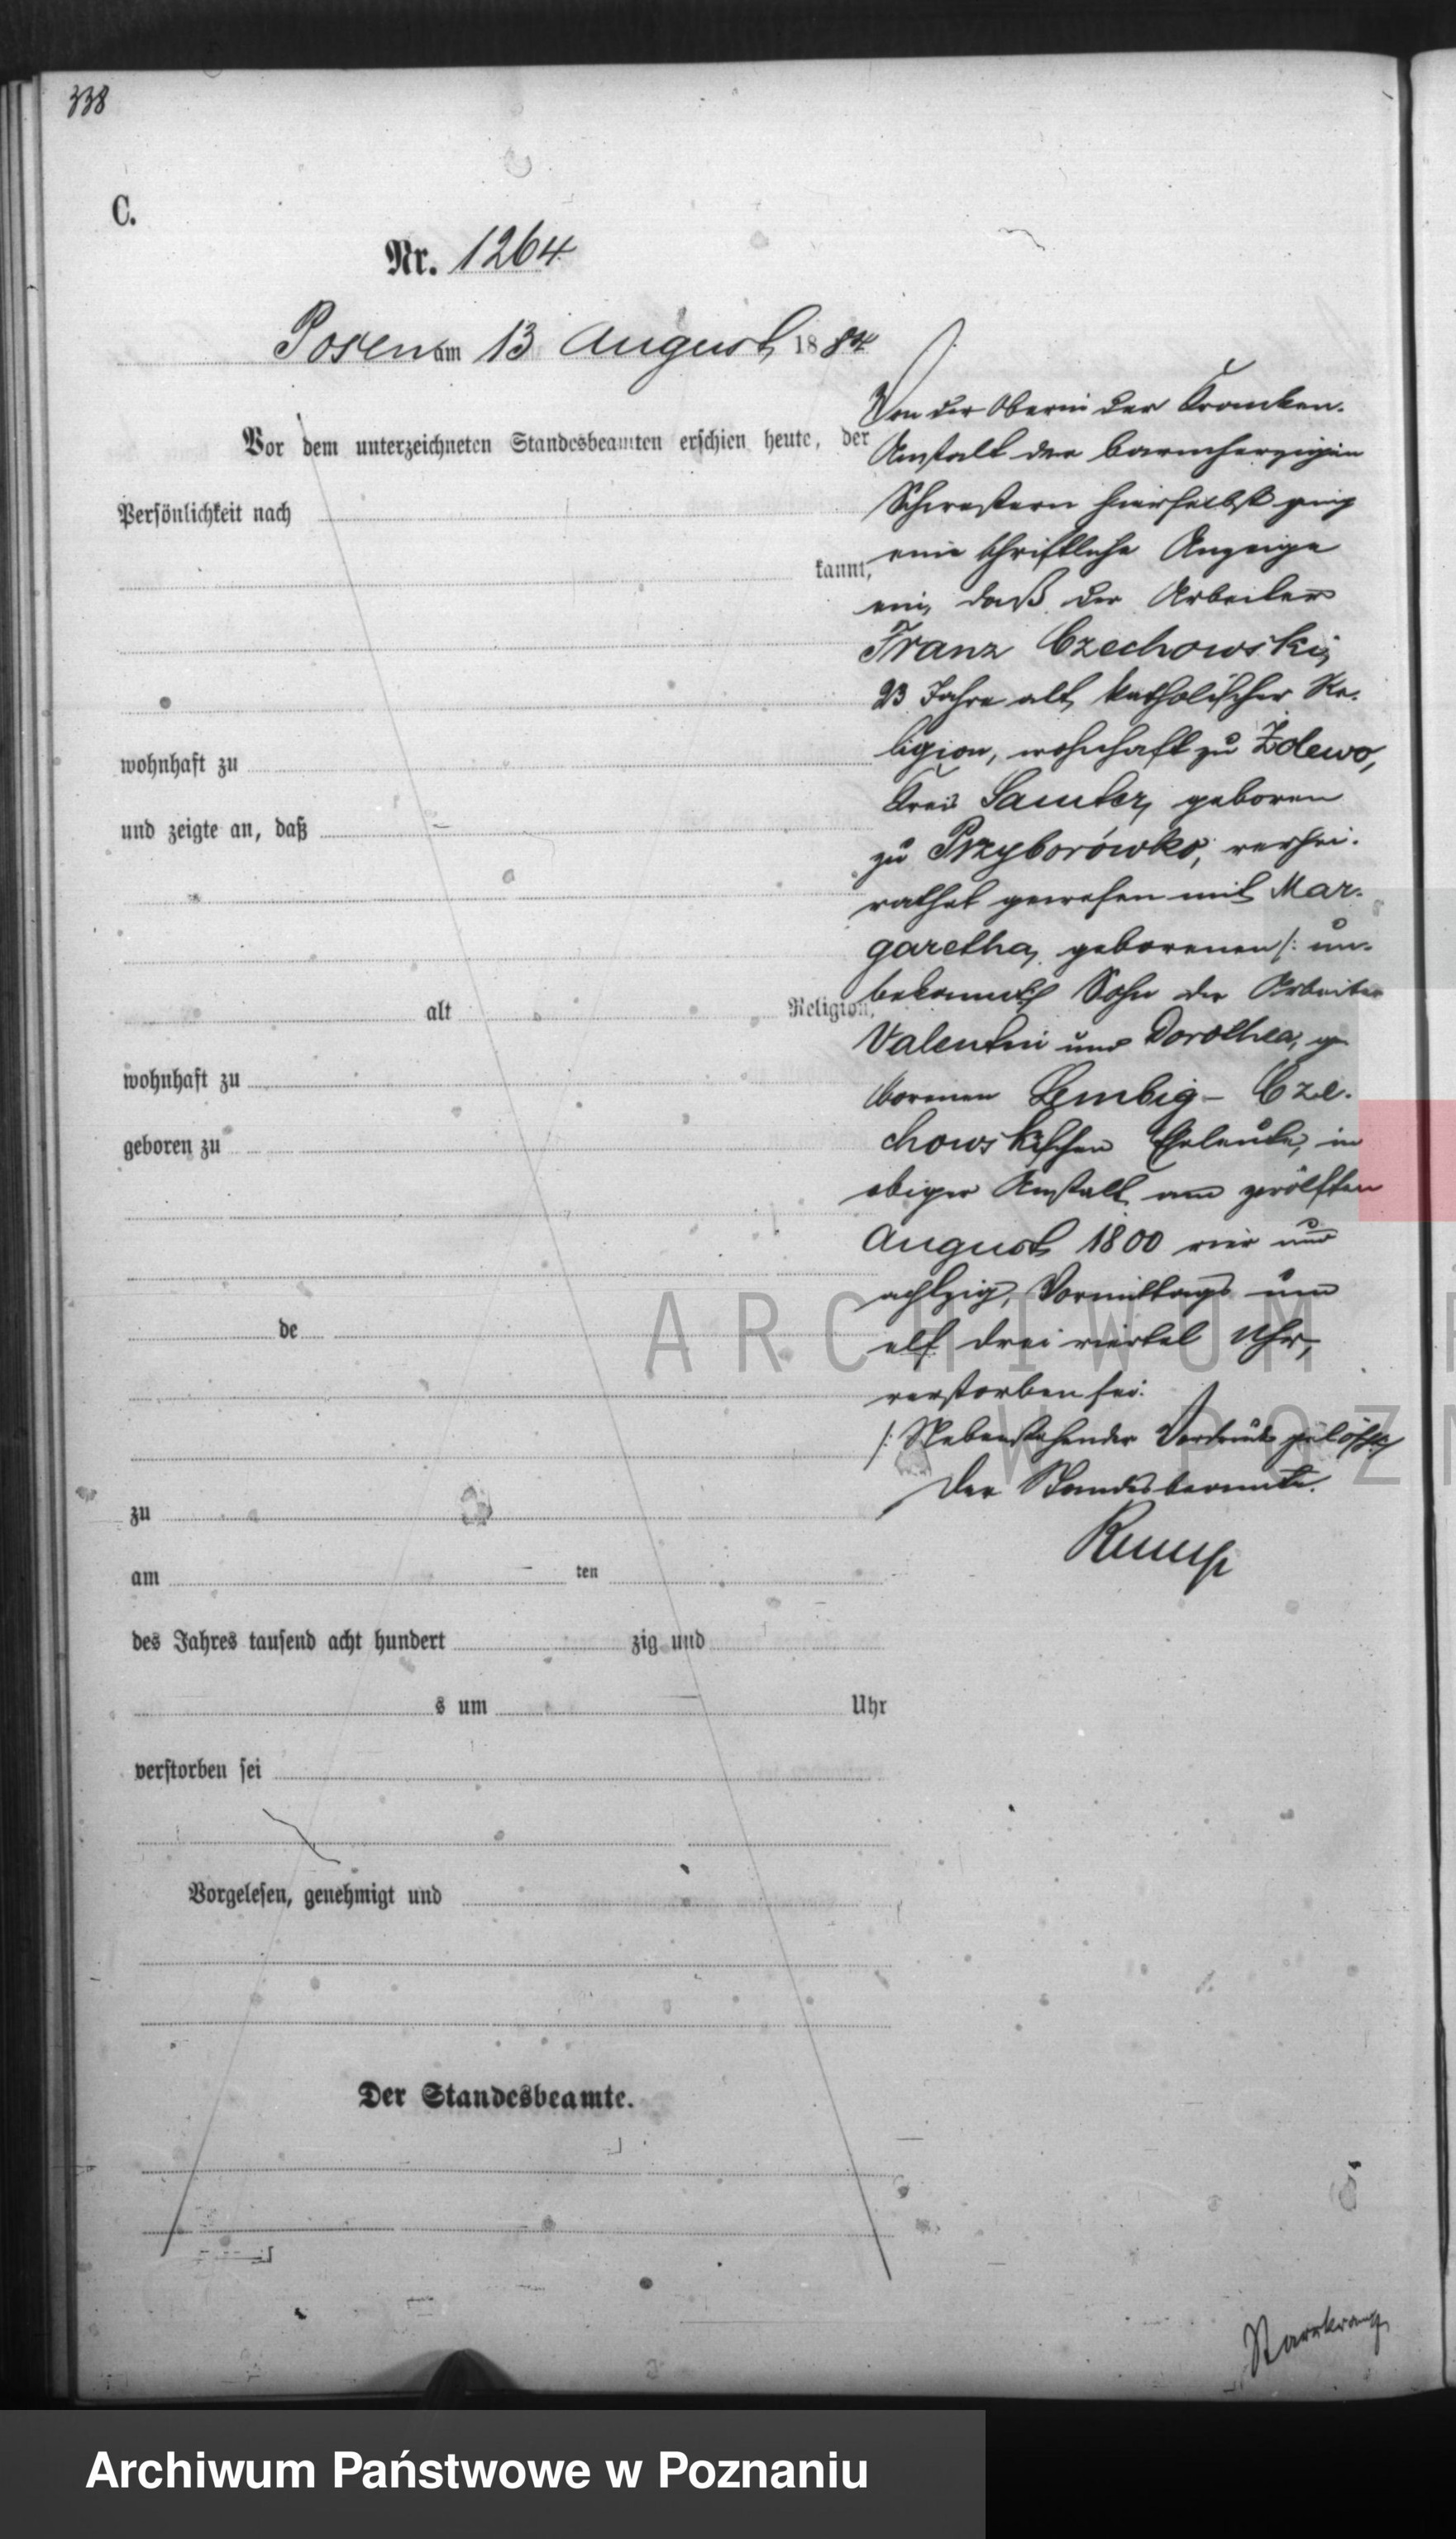 338
C.
Nr. 1264
Posen am 13 August 1884
Vor dem unterzeichneten Standesbeamten erschien heute, der
Persönlichkeit nach
kannt,
wohnhaft zu
und zeigte an, daß
alt Religion,
wohnhaft zu
geboren zu
de
zu
am ten
des Jahres tausend acht hundert zig und
s um Uhr
verstorben sei
Vorgelesen, genehmigt und
Der Standesbeamte.
Von der Oberin der Kranken-
Anstalt der barmherzigen
Schwestern hierselbst ging
eine schriftliche Anzeige
ein, daß der Arbeiter
Franz Czechowski,
23 Jahre alt, katholischer Re-
ligion, wohnhaft zu Zolewo,
Kreis Samter, geboren
zu Przyborówko, verhei-
rathet gewesen mit Mar-
garetha, geborenen /: un-
bekannt :/ Sohn der Arbeiter
Valentin und Dorothea, ge
borenen Lembig- Cze-
chowskischen Eheleute, in
obiger Anstalt am zwölften
August 1800 vier und
achtzig, Vormittags um
elf drei viertel Uhr,
verstorben sei.
/: Nebenstehender Vordruck gelöscht :/
Der Standesbeamte.
ARCHIWUM
W POZN
Archiwum Państwowe w Poznaniu